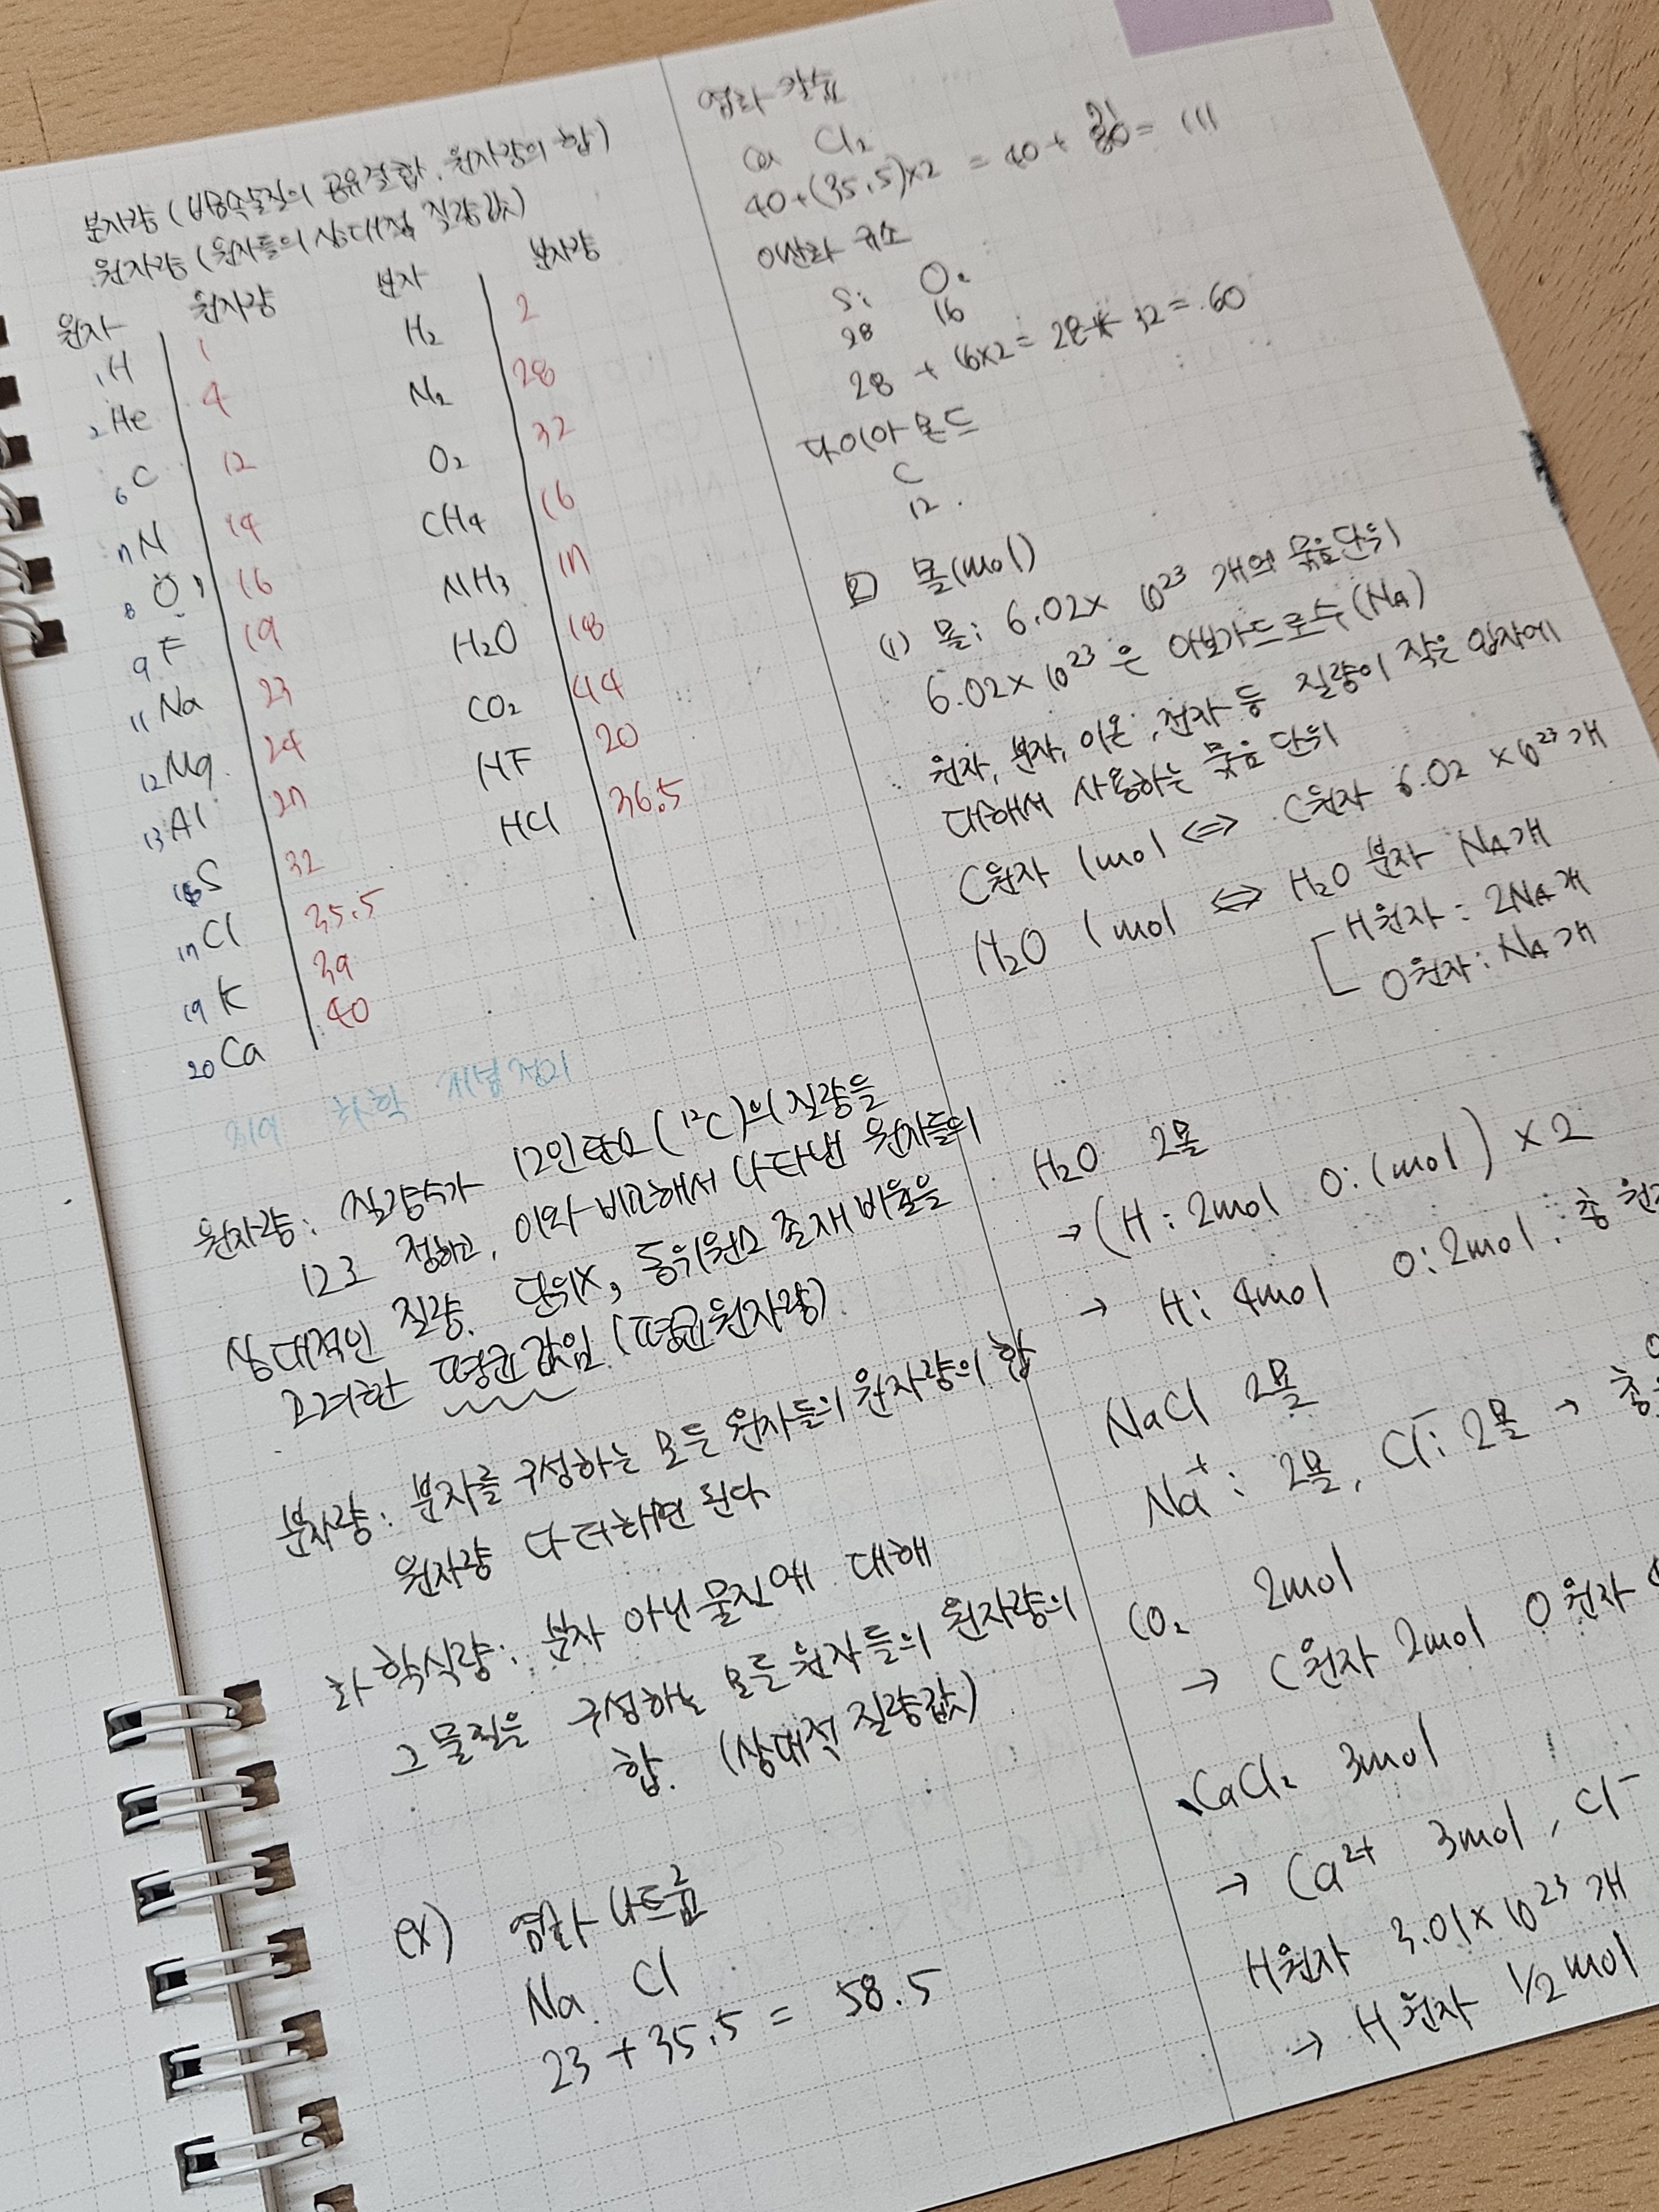 분자량 (비금속물질의 공유결합. 원자량의 합)
원자량 (원자들의 상대적 질량값)
원자 원자량 분자 분자량
₁H 1 H₂ 2
₂He 4 N₂ 28
₆C 12 O₂ 32
₇N 14 CH₄ 16
₈O 16 NH₃ 17
₉F 19 H₂O 18
₁₁Na 23 CO₂ 44
₁₂Mg 24 HF 20
₁₃Al 27 HCl 36.5
₁₆S 32
₁₇Cl 35.5
₁₉K 39
₂₀Ca 40
화학 개념정리
원자량: 질량수가 12인 탄소(¹²C)의 질량을
12로 정하고, 이와 비교해서 나타낸 원자들의
상대적인 질량. 단위X, 동위원소 존재 비율을
고려한 평균값임. (평균원자량)
분자량: 분자를 구성하는 모든 원자들의 원자량의 합
원자량 다 더하면 된다.
화학식량: 분자 아닌 물질에 대해
그 물질을 구성하는 모든 원자들의 원자량의
합. (상대적 질량값)
ex) 염화 나트륨
Na Cl
23 + 35.5 = 58.5
염화 칼슘
Ca Cl₂
40+(35.5)×2 = 40 + 71 = 111
이산화 규소
Si O₂
28 16
28 + 16×2 = 28 + 32 = 60
다이아몬드
C
12.
2 몰(mol)
(1) 몰: 6.02× 10²³ 개의 묶음단위
6.02× 10²³ 은 아보가드로수(Na)
원자, 분자, 이온, 전자 등 질량이 작은 입자에
대해서 사용하는 묶음 단위
C원자 1mol ⇔ C원자 6.02 × 10²³개
H₂O 1mol ⇔ H₂O 분자 NA개
H원자: 2NA개
O원자: NA개
H₂O 2몰
→ (H: 2mol O: 1mol) × 2
→ H: 4mol O: 2mol : 총 원
NaCl 2몰
Na⁺: 2몰, Cl⁻: 2몰 → 총
CO₂ 2mol
→ C원자 2mol O원자
CaCl₂ 3mol
→ Ca²⁺ 3mol, Cl⁻
H원자 3.01× 10²³개
→ H원자 1/2 mol